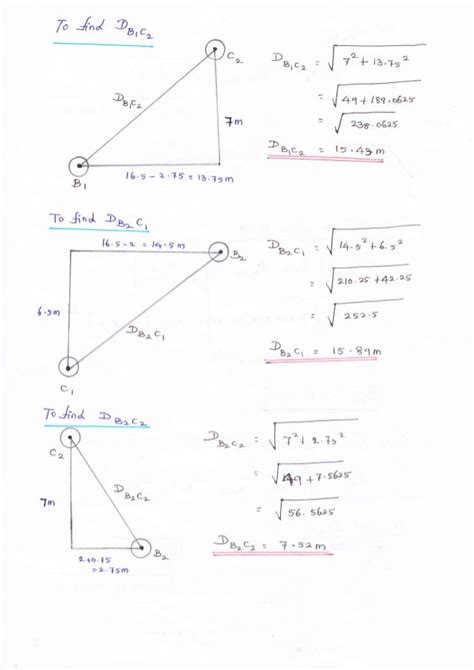 To find D_B₁C₂
C₂
D_B₁C₂
7m
B₁
16.5 - 2.75 = 13.75m
D_B₁C₂ = √7² + 13.75²
= √49 + 189.0625
= √238.0625
D_B₁C₂ = 15.43 m
To find D_B₂C₁
16.5 - 2 = 14.5m
B₂
6.5m
D_B₂C₁
C₁
D_B₂C₁ = √14.5² + 6.5²
= √210.25 + 42.25
= √252.5
D_B₂C₁ = 15.89m
To find D_B₂C₂
C₂
7m
D_B₂C₂
B₂
2+0.75
= 2.75m
D_B₂C₂ = √7² + 2.75²
= √49 + 7.5625
= √56.5625
D_B₂C₂ = 7.52m